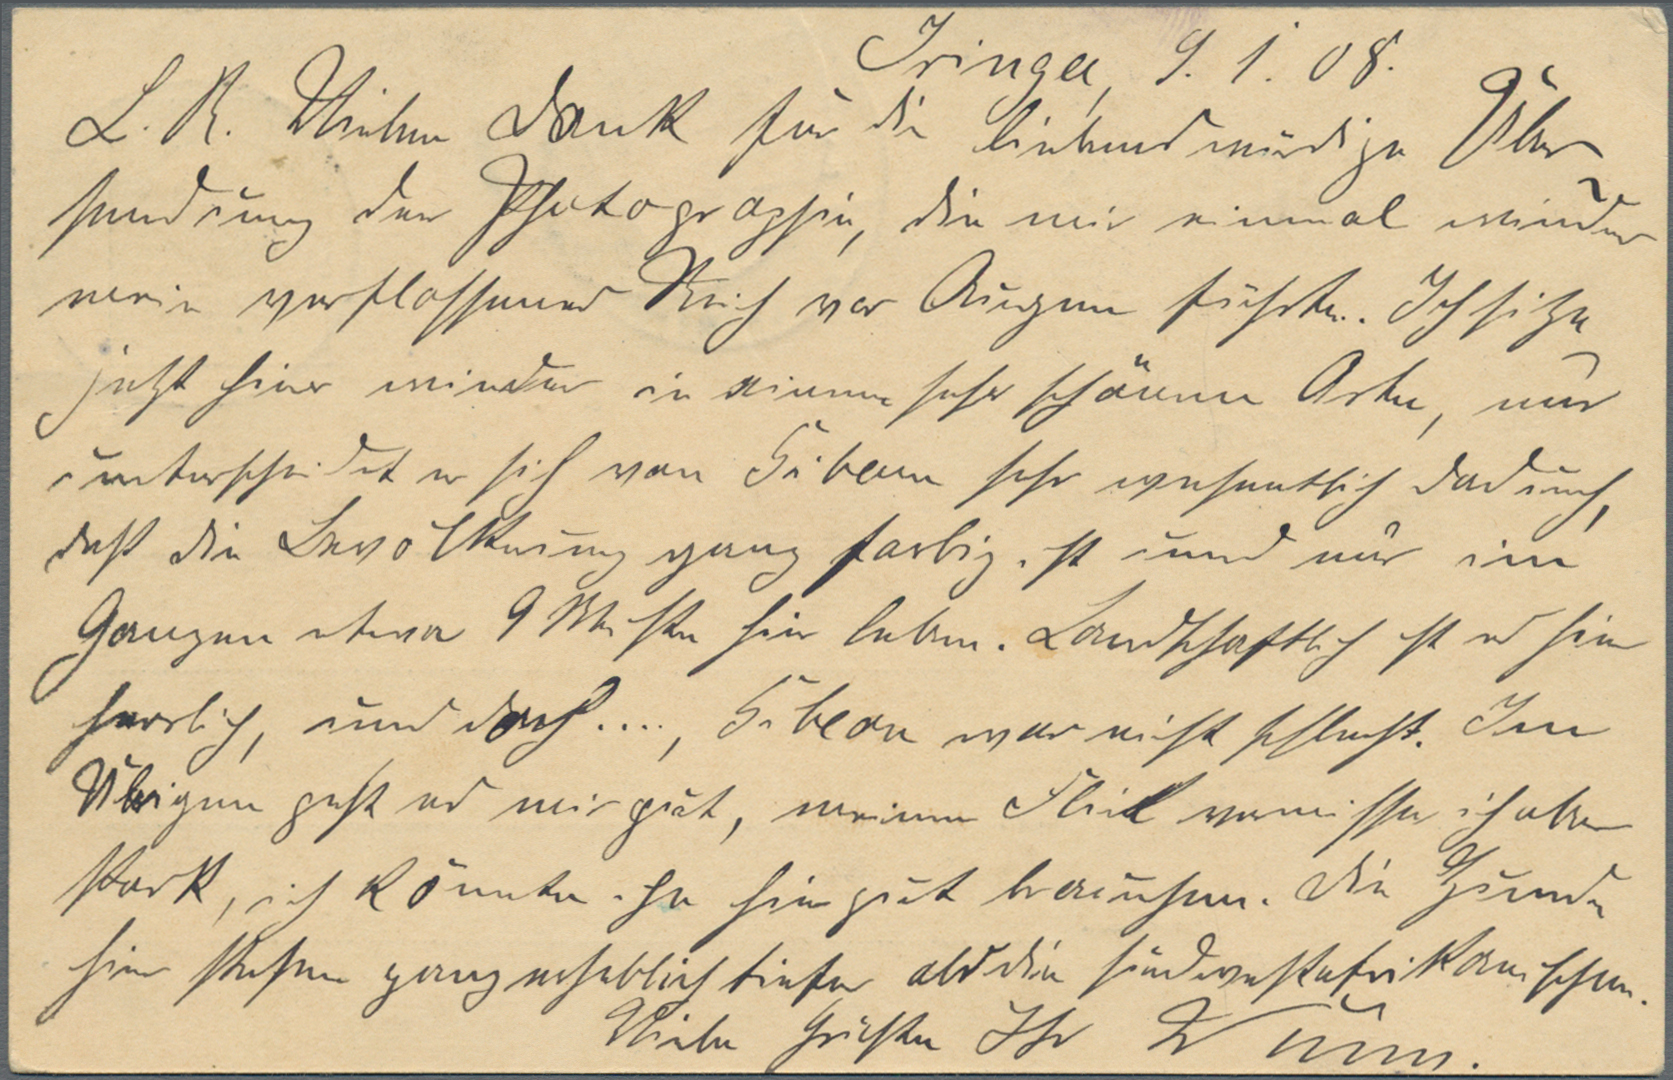 Iringa, 9. 1. 08.
L. R. Vielen Dank für die liebenswürdige Über
sendung der Photographie, die mir einmal wieder
mein verflossenes Reich vor Augen führte. Ich sitze
jetzt hier wieder in einem sehr schönen Orte, nur
unterscheidet er sich von Gibeon sehr wesentlich dadurch,
daß die Bevölkerung ganz farbig ist und nur im
Ganzen etwa 9 Weiße hier leben. Landschaftlich ist es hier
herrlich, und doch...., Gibeon war nicht schlecht. Im
Übrigen geht es mir gut, meinen vermisse ich aber
stark, ich könnte ihn hier gut brauchen. Die Hunde
hier stehen ganz erheblich tiefer als die südwestafrikanischen.
Viele Grüße Ihr